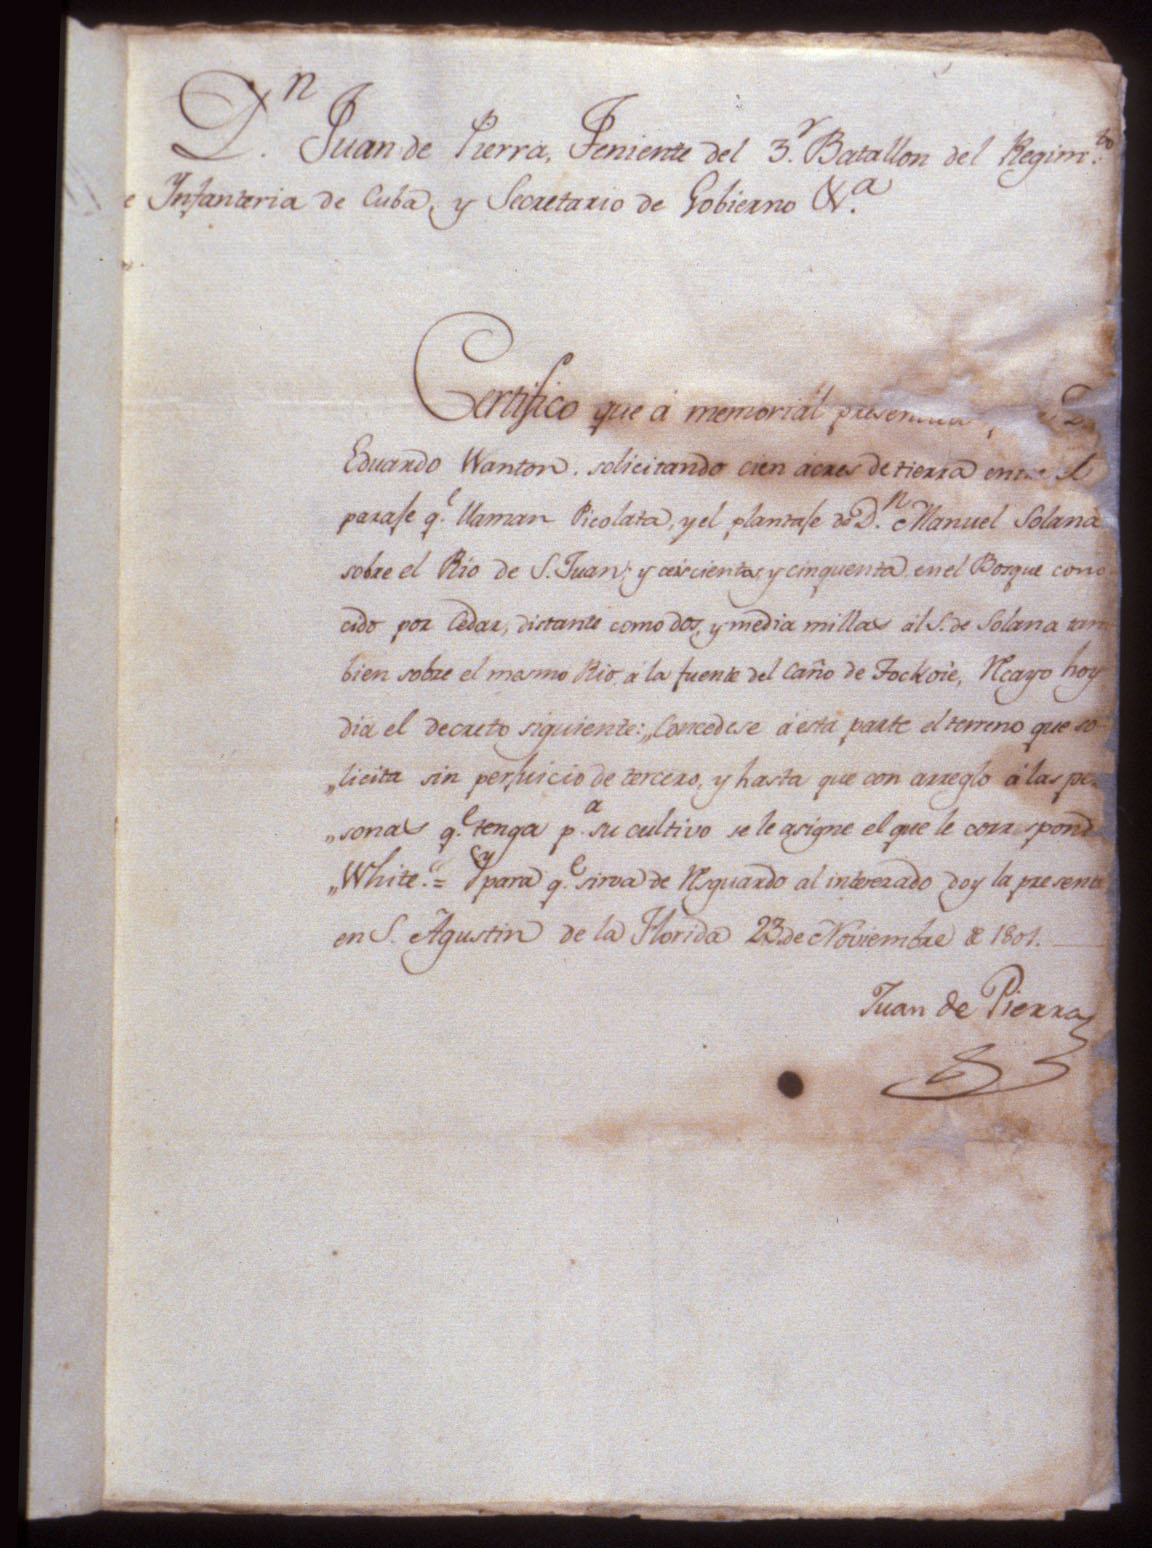 Dn. Juan de Pierra, Teniente del 3.r Batallon del Regim.to
e Infanteria de Cuba, y Secretario de Gobierno &.a
Certifico que á memorial
Eduardo Wanton. solicitando cien acres de tierra entre el
paraje q.e llaman Picolata, y el plantaje de D.n Manuel Solana
sobre el Rio de S. Juan; y ceiscientos, y cinquenta en el Bosque cono
cido por Cedar, distante como dos, y media millas al S. de Solana tam
bien sobre el mesmo Rio á la fuente del Caño de Tockoie, Recayo hoy
dia el decreto siguiente: „Concedese á esta parte el terreno que so
„licita sin perjuicio de tercero, y hasta que con arreglo á las per
„sonas q.e tenga p.a su cultivo se le asigne el que le corresponde
„White.= Y para q.e sirva de Resguardo al interezado doy la presente
en S. Agustin de la Florida 23 de Noviembre de 1801.
Juan de Pierra